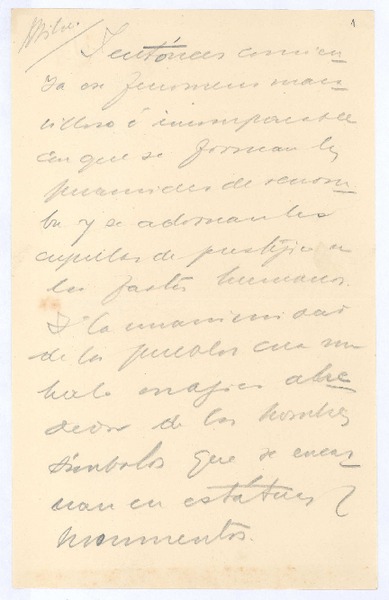 1
I entónces comien
za ese fenomeno mara
villoso é incomparable
en que se forman las
piramides de renom
bre y se adornan las
cupulas de prestijio en
los fastos humanos.
I la unanimidad
de los pueblos crea un
halo májico alre
dedor de los hombres
símbolos que se encar
nan en estatuas y
monumentos.